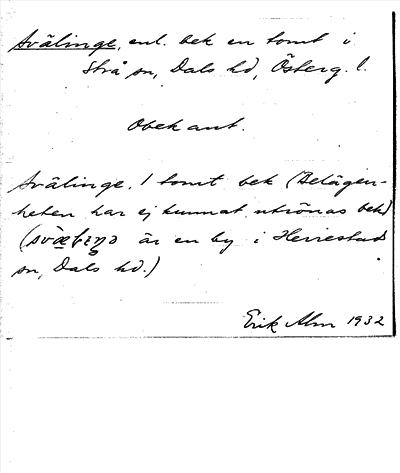 Svälinge, enl. bek en tomt i
Strå sn, Dals hd, Österg. l.
Obek ant.
Svälinge. 1 tomt bek (Belägen-
heten har ej kunnat utrönas bek)
(svæ̀liŋə är en by i Herrestads
sn, Dals hd.)
Erik Alm 1932